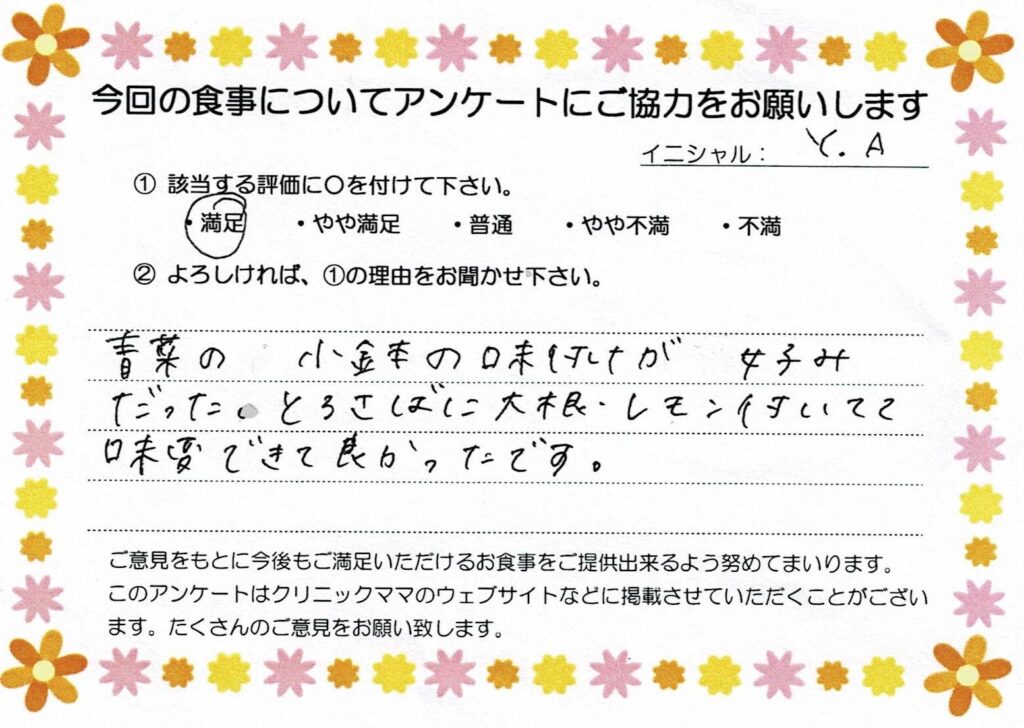 今回の食事についてアンケートにご協力をお願いします
イニシャル： Y. A
① 該当する評価に〇を付けて下さい。
・満足 ・やや満足 ・普通 ・やや不満 ・不満
② よろしければ、①の理由をお聞かせ下さい。
青菜の 小金本の味付けが 好み
だった。とろさばに大根・レモン付いてて
味変できて良かったです。
ご意見をもとに今後もご満足いただけるお食事をご提供出来るよう努めてまいります。
このアンケートはクリニックママのウェブサイトなどに掲載させていただくことがござい
ます。たくさんのご意見をお願い致します。